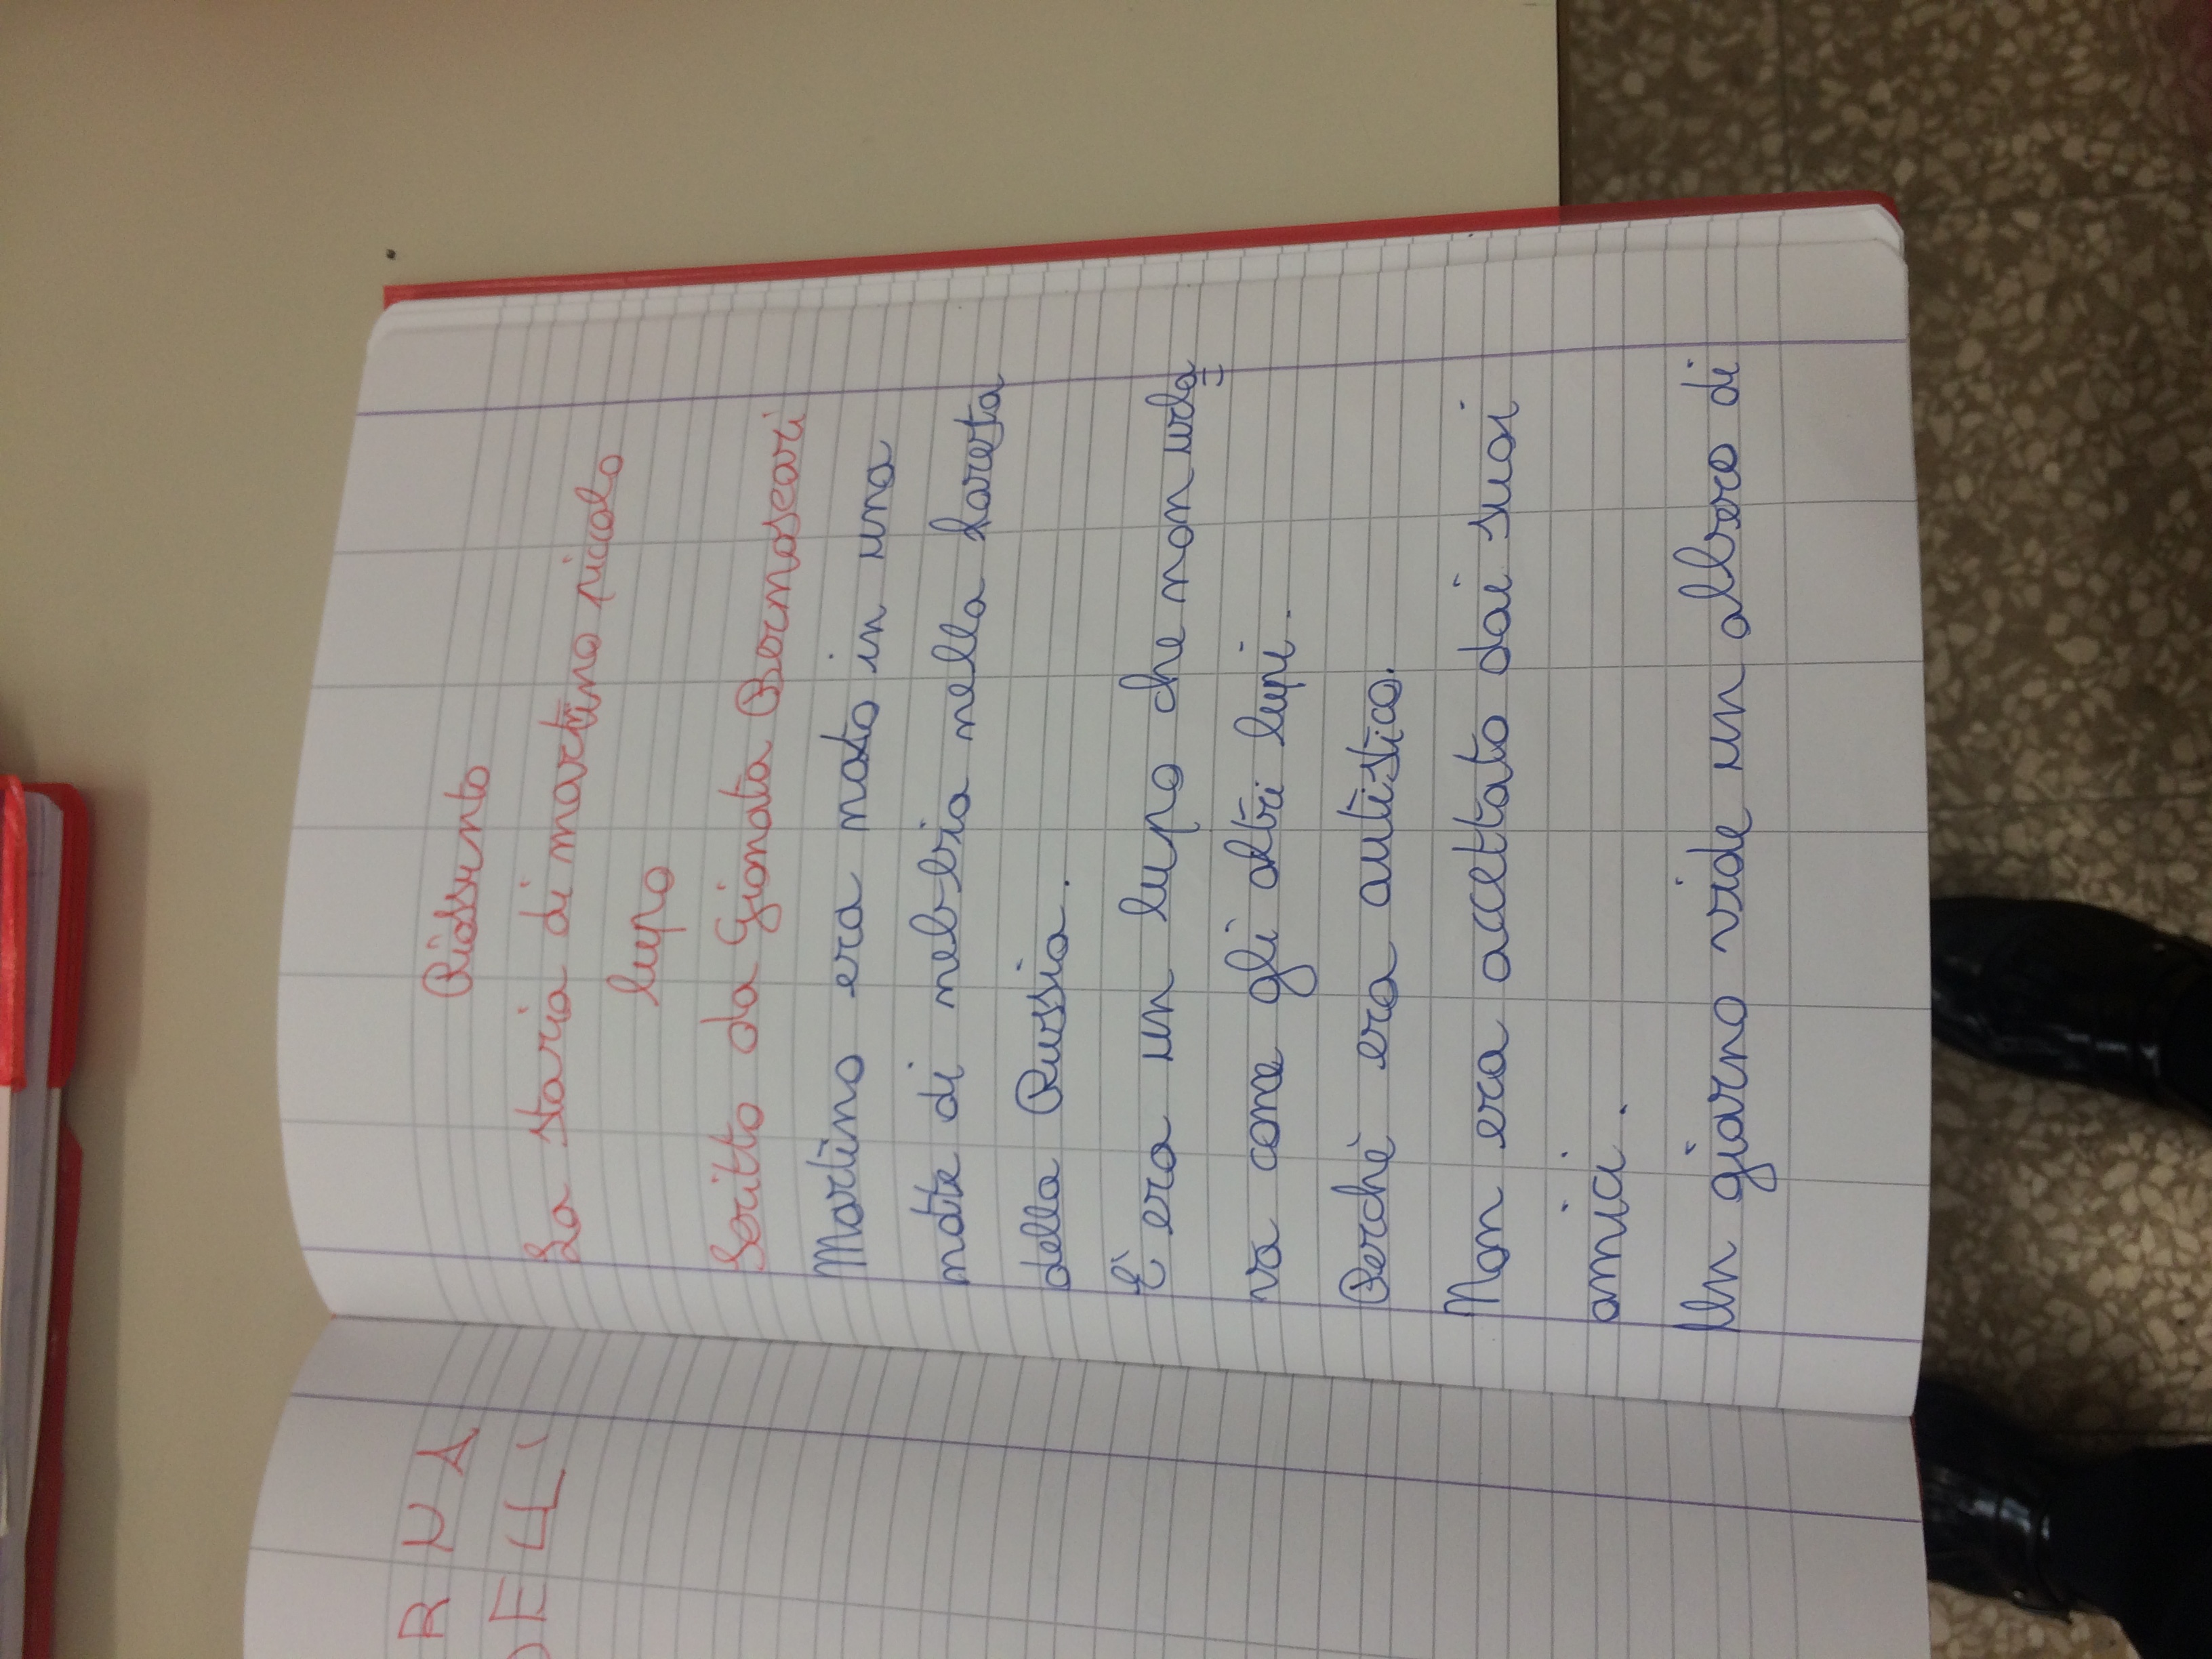 Riassunto
La storia di martino piccolo
lupo
Scritto da Gionata Bernasconi
Martino era nato in una
notte di nebbia nella foresta
della Russia.
È era un lupo che non urla
va come gli altri lupi.
Perchè era autistico.
Non era accettato dai suoi
amici.
Un giorno vide un albero di
R N A
DELL'